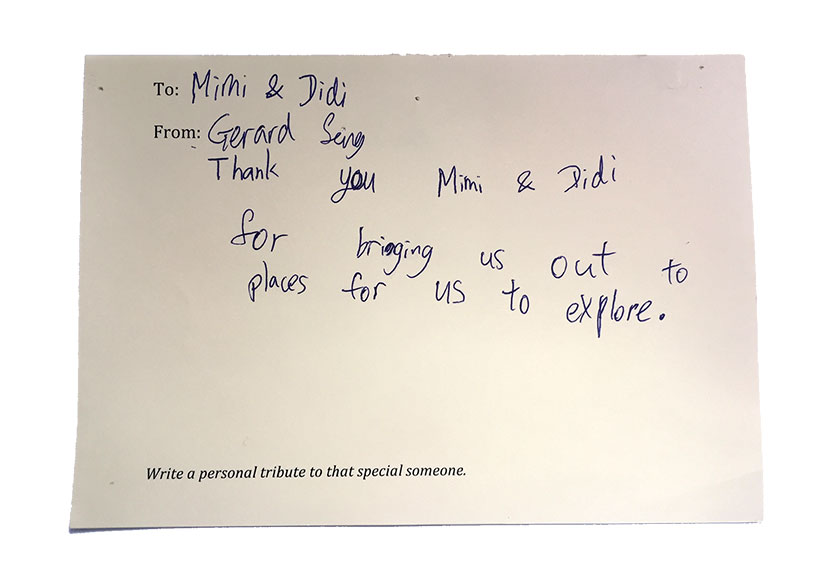 To: Mimi & Didi
From: Gerard Seing
Thank you Mimi & Didi
for bringing us out to
places for us to explore.
Write a personal tribute to that special someone.